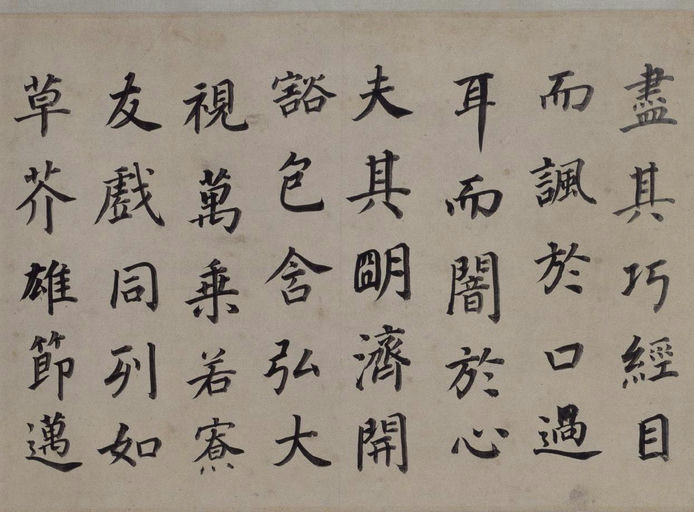 盡其巧經目
而諷於口過
耳而闇於心
夫其明濟開
豁包含弘大
視萬乗若寮
友戲同列如
草芥雄節邁